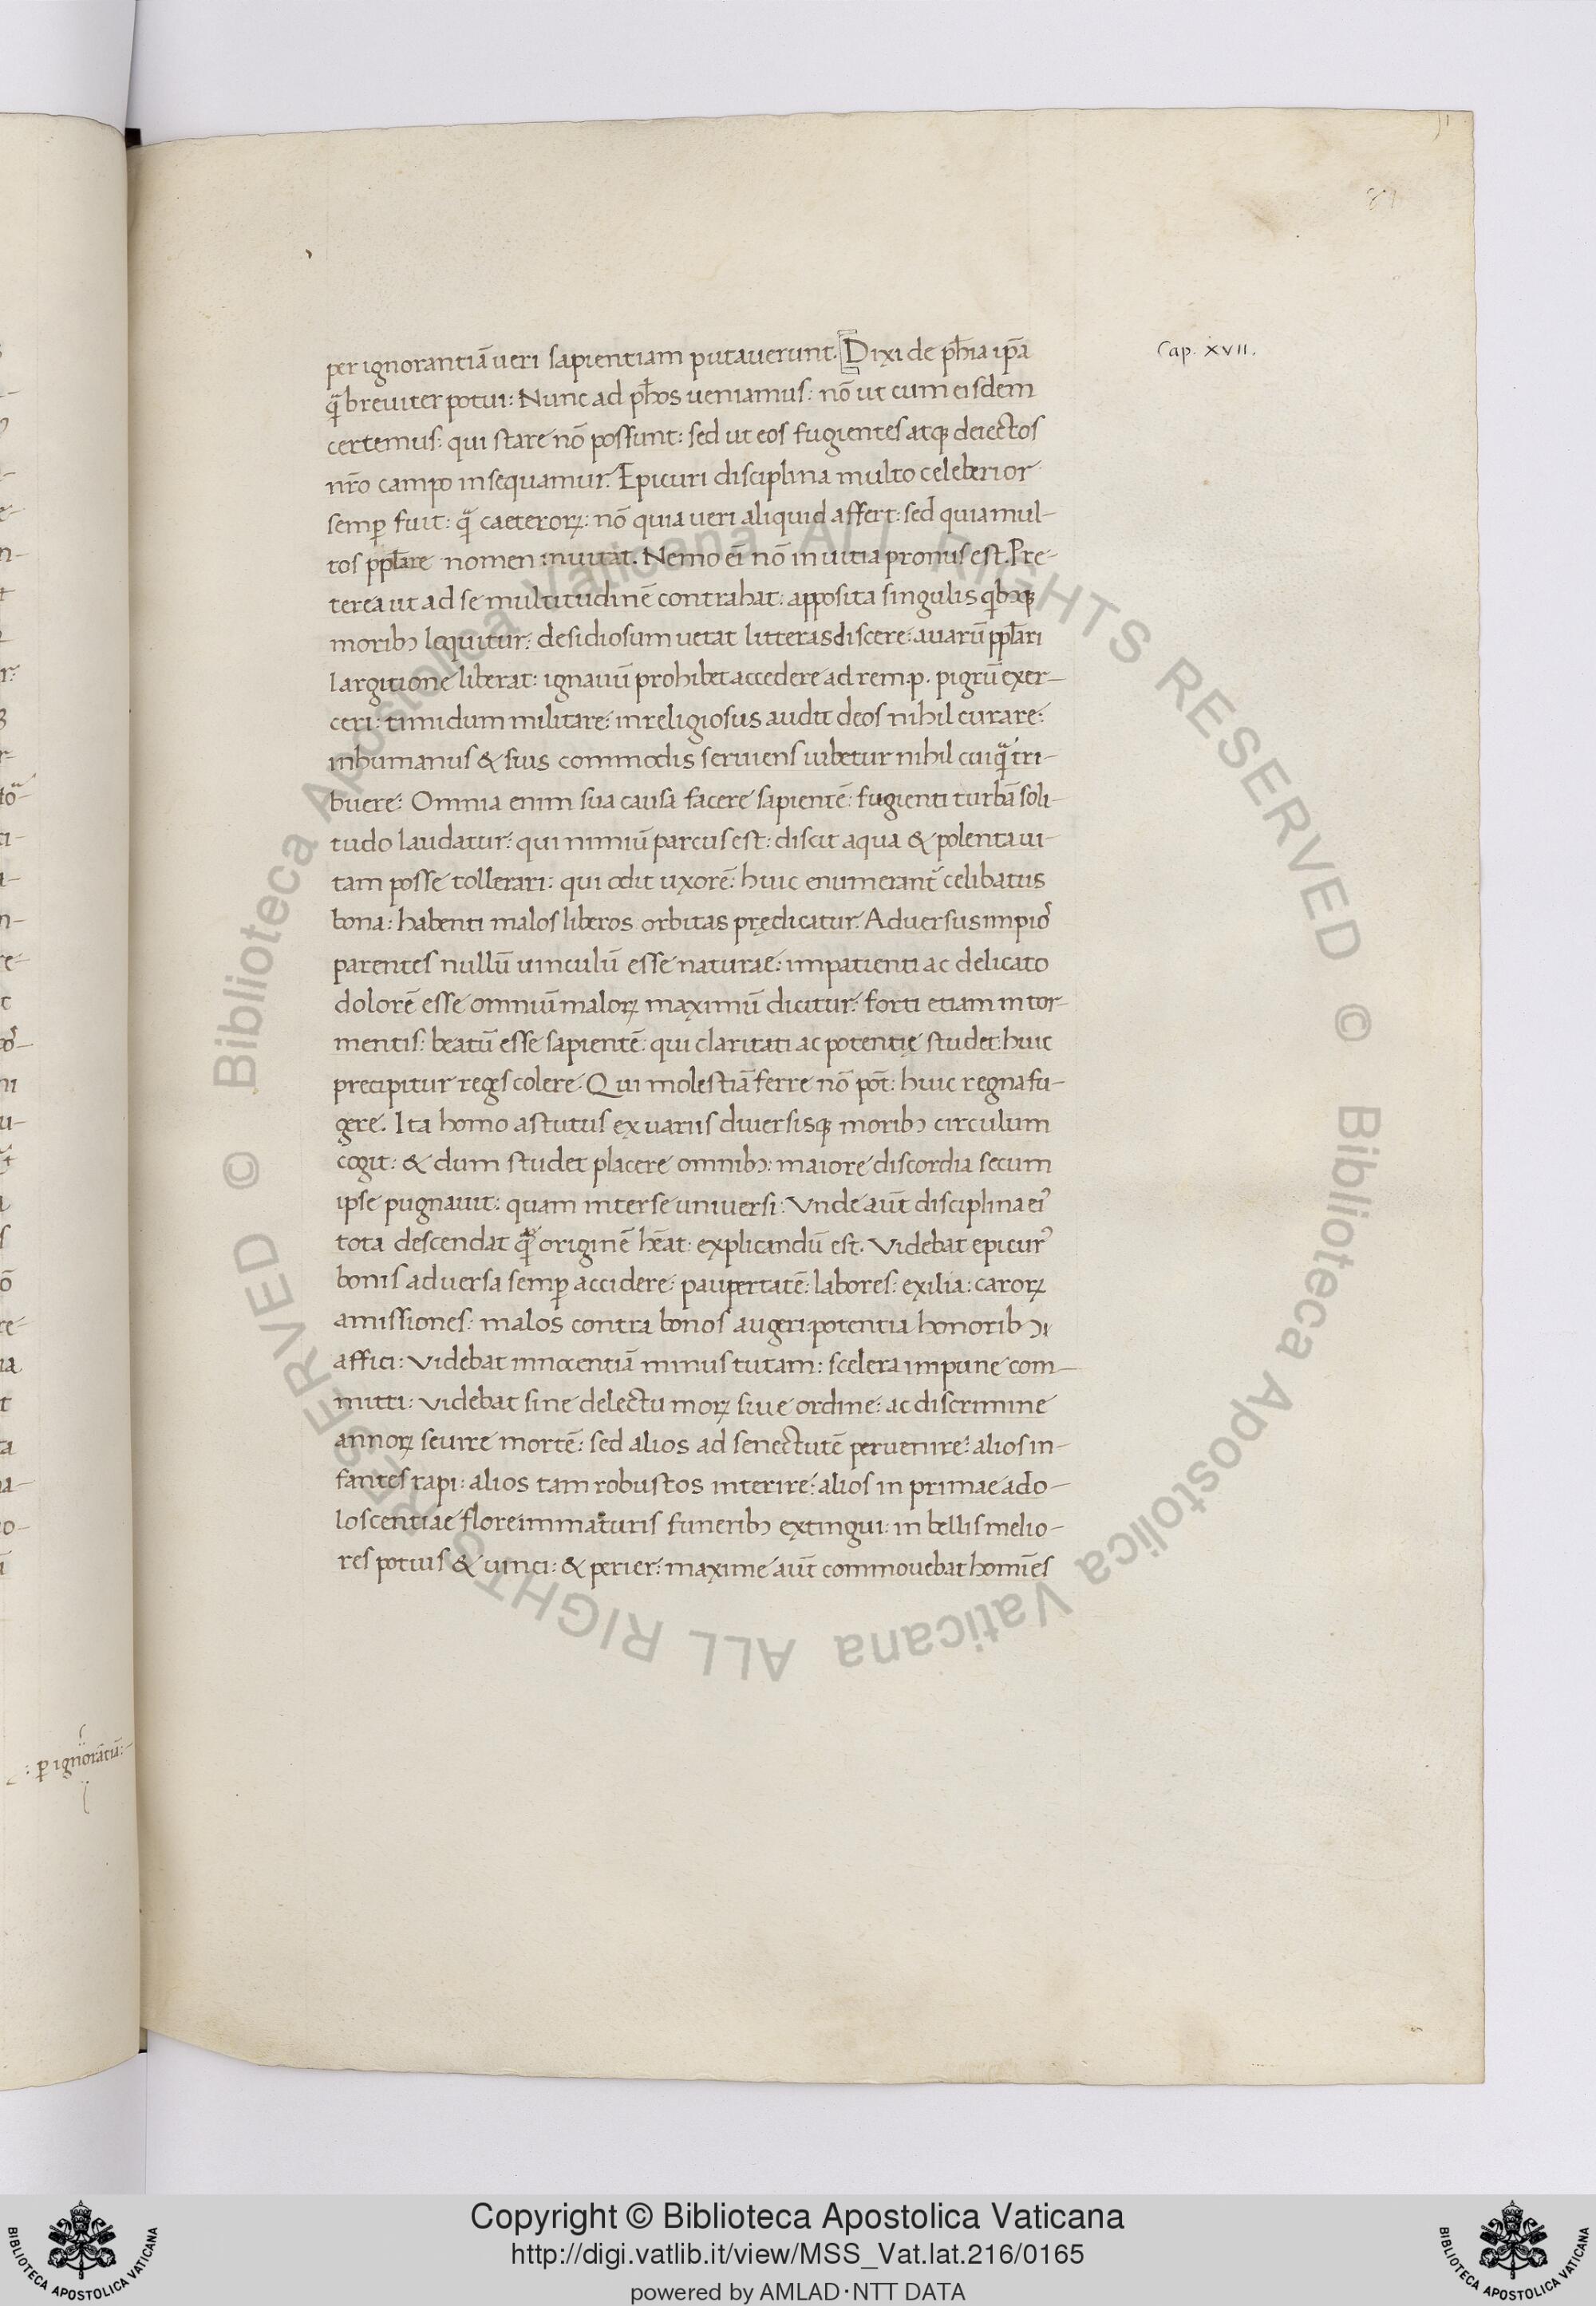 per ignorantiā ueri sapientiam putauerunt. Dixi de ph̄ia ip̄a
Cap. XVII.
q̄ breuiter potui: Nunc ad ph̄os ueniamus: nō ut cum eisdem
certemus: qui stare nō possunt: sed ut eos fugientes atqꝫ deiectos
nr̄o campo insequamur. Epicuri disciplina multo celeberior
semꝑ fuit: q̄ caeteroꝝ: nō quia ueri aliquid affert: sed quia mul-
tos pplare nomen inuitat. Nemo ei nō in uitia pronus est. Pre-
terea ut ad se multitudinē contrahat: apposita singulis qbꝰqꝫ
moribꝰ loquitur: desidiosum uetat litteras discere: auarū pplari
largitione liberat: ignauū prohibet accedere ad rem.p. pigrū exer-
ceri: timidum militare: inreligiosus audit deos nihil curare:
inhumanus & suis commodis seruiens iubetur nihil cuiq̄ tri-
buere: Omnia enim sua causa facere sapientē: fugienti turbā soli-
tudo laudatur: qui nimiū parcus est: discit aqua & polenta ui-
tam posse tollerari: qui odit uxorē: huic enumerant᷑ celibatus
bona: habenti malos liberos orbitas prędicatur. Aduersus impioꝰ
parentes nullū uinculū esse naturae: impatienti ac delicato
dolorē esse omniū maloꝝ maximū dicitur: forti etiam in tor-
mentis: beatū esse sapientē: qui claritati ac potentię studet: huic
precipitur reges colere. Qui molestiā ferre nō pōt: huic regna fu-
gere. Ita homo astutus ex uariis diuersisqꝫ moribꝰ circulum
cogit: & dum studet placere omnibꝰ: maiore discordia secum
ipse pugnauit: quam inter se uniuersi: Vnde aūt disciplina eiꝰ
tota descendat originē hēat: explicandū est. Videbat epicurꝰ
bonis aduersa semꝑ accidere: paupertatē: labores: exilia: caroꝝ
amissiones: malos contra bonos augeri: potentia honoribꝰ
affici: Videbat innocentiā minus tutam: scelera impune com-
mitti: Videbat sine delectu moꝝ siue ordine: ac discrimine
annoꝝ seuire mortē: sed alios ad senectutē peruenire: alios in-
fantes rapi: alios tam robustos interire: alios in primae ado-
loscentiae flore immaturis funeribꝰ extingui: in bellis melio-
res potius & uinci: & perier: maxime aūt commouebat homīes
ꝑ ignorātiā:
© Biblioteca Apostolica Vaticana ALL RIGHTS RESERVED © Biblioteca Apostolica Vaticana ALL RIGHTS RESERVED
Copyright © Biblioteca Apostolica Vaticana
http://digi.vatlib.it/view/MSS_Vat.lat.216/0165
powered by AMLAD·NTT DATA
BIBLIOTECA APOSTOLICA VATICANA
BIBLIOTECA APOSTOLICA VATICANA